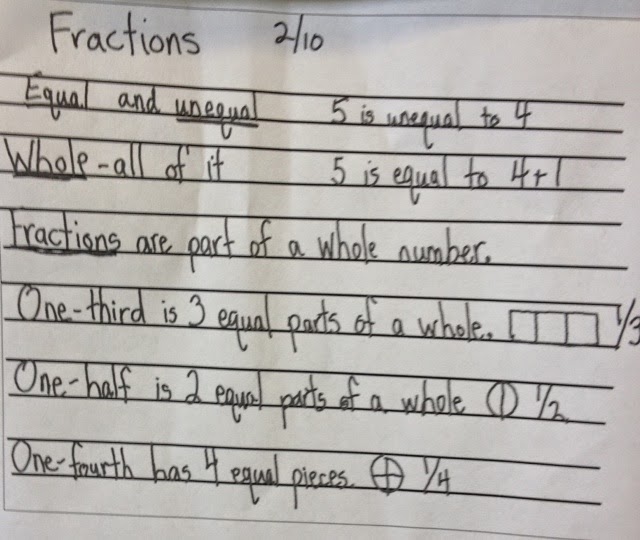 Fractions 2/10
Equal and unequal 5 is unequal to 4
Whole - all of it 5 is equal to 4+1
Fractions are part of a whole number.
One-third is 3 equal parts of a whole. 1/3
One-half is 2 equal parts of a whole 1/2
One-fourth has 4 equal pieces. 1/4